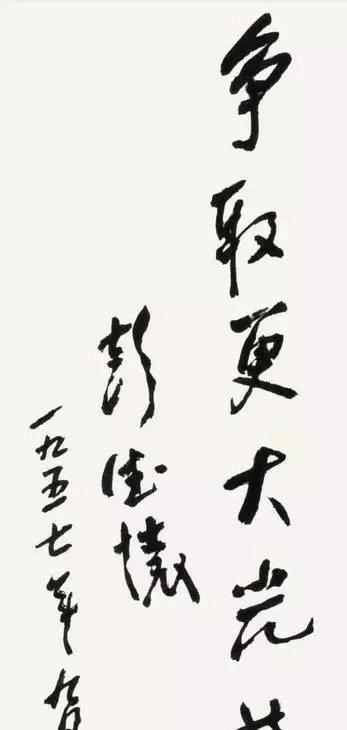 争取更大光
彭德懷
一九五七年九月